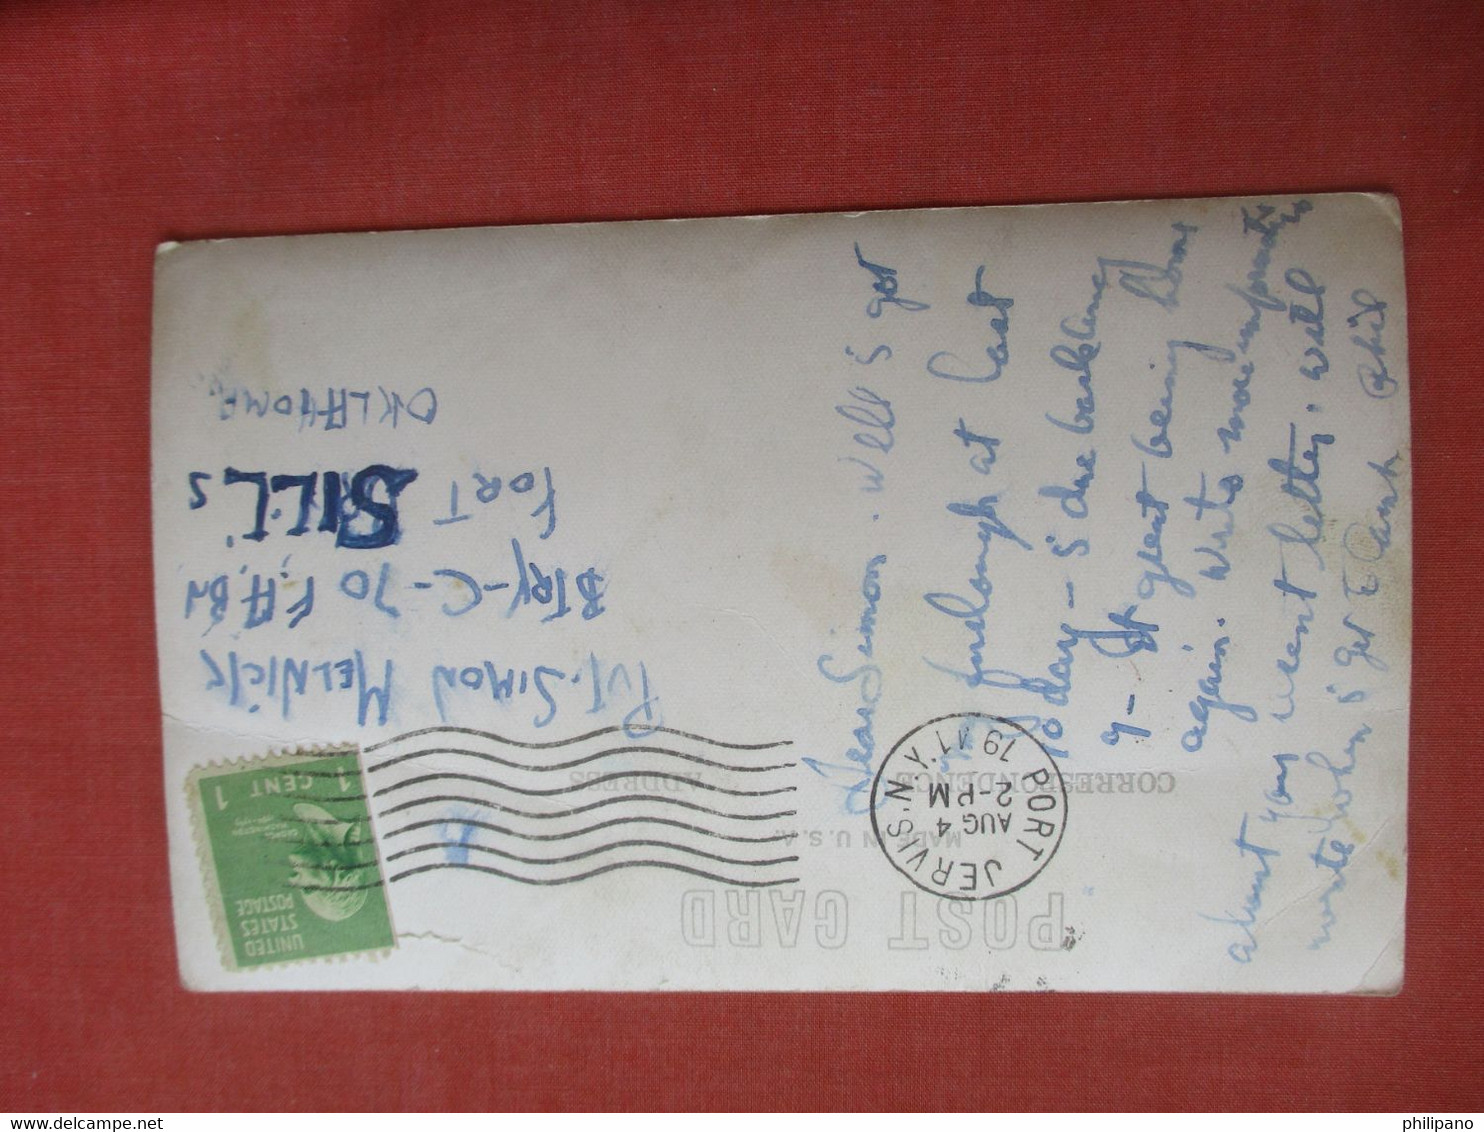 POST CARD
MADE IN U.S.A.
CORRESPONDENCE
ADDRESS
PORT JERVIS N.Y.
AUG 4
2-PM
1941
UNITED
STATES
POSTAGE
1 CENT 1
Dear Simon. Well I got
my furlough at last
today - I due back Aug
9 - It great being home
again. Write more information
about you recent letter. Will
write when I get to Camp
Phil
PVT. SIMON MELNICK
BTRY-C-70 F.A.BN
FORT SILL'S
OKLAHOMA.
philipano